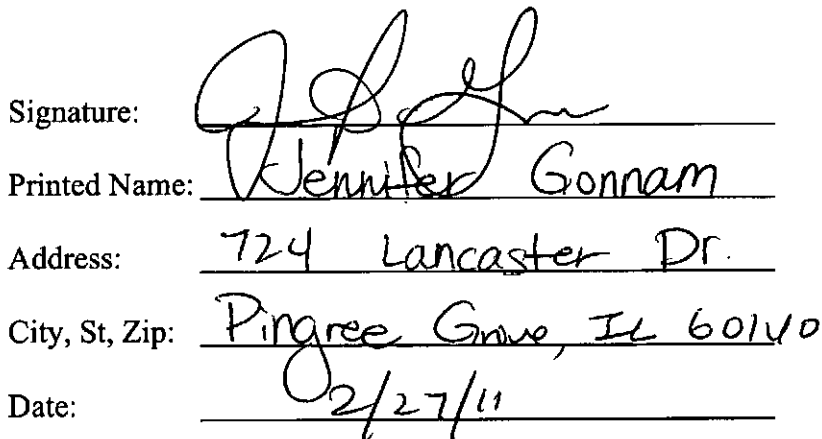 Signature:
Printed Name: Jennifer Gonnam
Address: 724 Lancaster Dr.
City, St, Zip: Pingree Grove, IL 60140
Date: 2/27/11